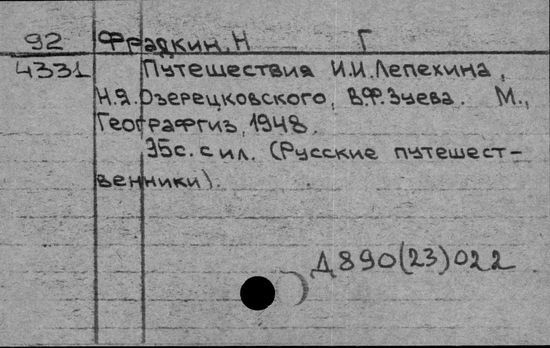 92 Фрадкин, Н Г
4331 Путешествия И.И.Лепехина,
Н.Я.Озерецковского, В.Ф.Зуева. М.,
Географгиз, 1948.
95с. с ил. (Русские путешест-
венники).
Д890(23)022